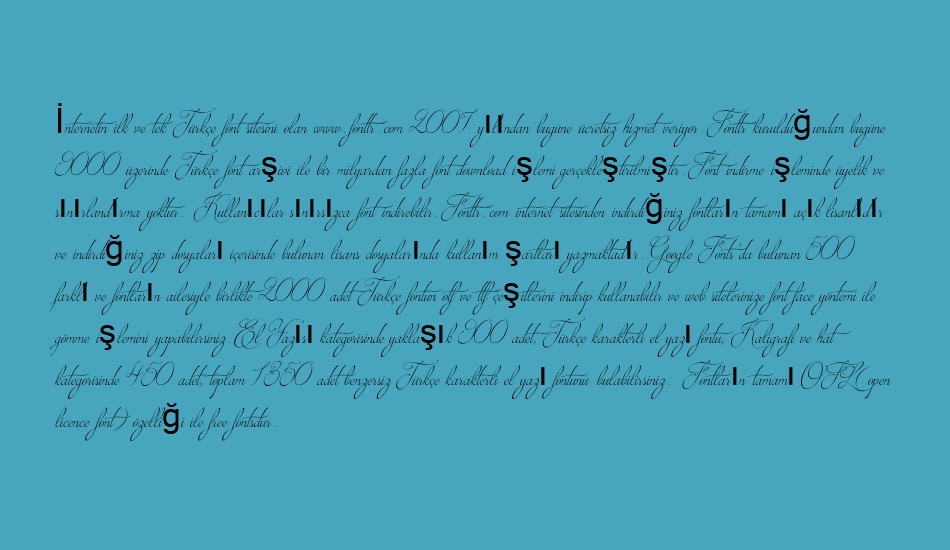 İnternetin ilk ve tek Türkçe font sitesini olan www.fonttr.com 2007 yılından bugüne ücretsiz hizmet veriyor. Fonttr kurulduğundan bugüne
3000 üzerinde Türkçe font arşivi ile bir milyardan fazla font download işlemi gerçekleştirilmiştir. Font indirme işleminde üyelik ve
sınırlandırma yoktur. Kullanıcılar sınırsızca font indirebilir. Fonttr.com internet sitesinden indirdiğiniz fontların tamamı açık lisanlıdır
ve indirdiğiniz zip dosyaları içerisinde bulunan lisans dosyalarında kullanım şartları yazmaktadır. Google Fonts'da bulunan 500
farklı ve fontların ailesiyle birlikte 2000 adet Türkçe fontun otf ve ttf çeşitlerini indirip kullanabilir ve web sitelerinize font face yöntemi ile
gömme işlemini yapabilirsiniz. El Yazısı kategorisinde yaklaşık 900 adet, Türkçe karakterli el yazı fontu, Kaligrafi ve hat
kategorisinde 450 adet, toplam 1350 adet benzersiz Türkçe karakterli el yazı fontunu bulabilirsiniz. Fontların tamamı OFL( open
licence font) özelliği ile free fontrdur.